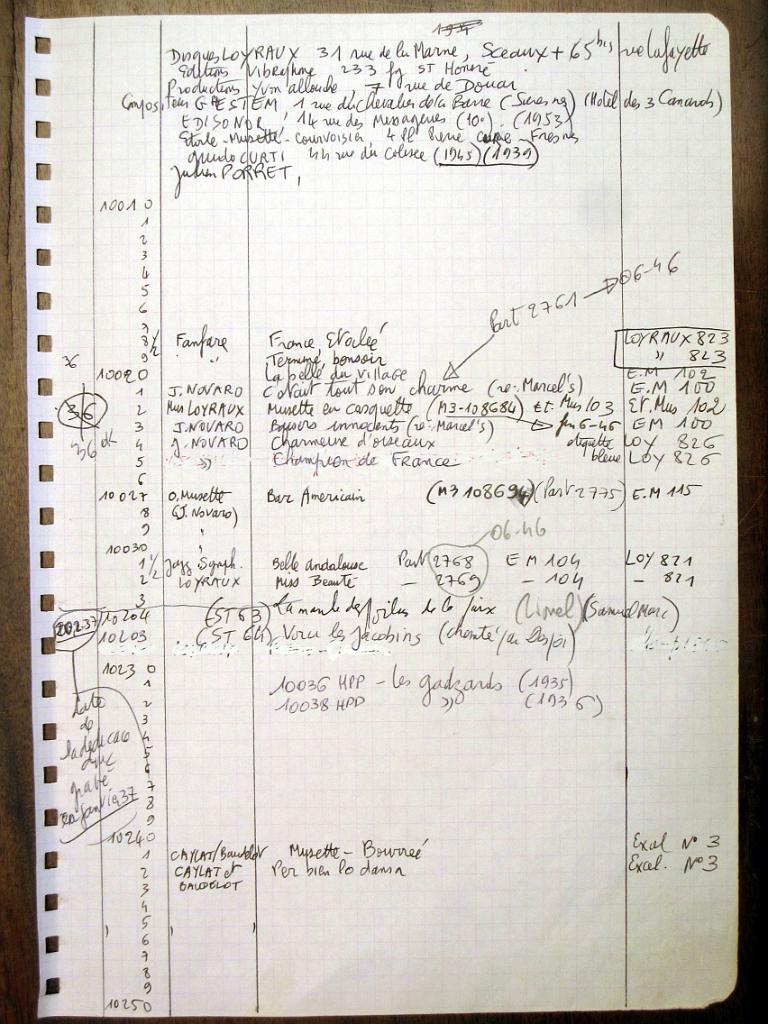 Disques LOYRAUX 31 rue de la Marne, Sceaux + 65 bis rue Lafayette
Editions Vibraphone 233 fg ST Honoré
Productions Yvon allouche, 7 rue de Douai
1 rue du Chevalier de la Barre (Suresnes) (Hotel des 3 Canards)
EDISONOR, 14 rue des Messageries (10e). (1953)
Etoile-Musette-Courvoisier, 4 Pierre Curie - Fresnes
guido CURTI 44 rue du Colisée (1945) (1939)
Julien PORRET,
10010
1
2
3
4
5
6
7
Part 2761 → 06-46
8 1/2 Fanfare France Etoilée LOYRAUX 823
9 " Terminé, bonsoir " 823
36
10020 La belle du village E.M 102
1 J. NOVARO C'était tout son charme (Marcel's) E.M 100
36
2 Mus LOYRAUX Musette en casquette (M3-108684) Et. Mus 103 Et. Mus 102
3 J. NOVARO Baisers innocents (Marcel's) 6-46 EM 100
36 ok
4 J. NOVARO Charmeuse d'oiseaux étiquette LOY 826
5 " Champion de France bleue LOY 826
6
10027 O. Musette Bar Americain (M3 108694) (Part 2775) E.M 115
8 (J. Novaro)
9 "
06-46
10030 "
1 1/2 Jazz Symph. Belle andalouse Part 2768 EM 104 LOY 821
2 LOYRAUX Miss Beauté - 2769 - 104 - 821
3
10204 (ST 63) La de la paix (Lionel) (Samuel Marc)
10203 (ST 64) Voici les Jacobins (chanté
10230
1
10036 HPP - les gadzards (1935)
2
10038 HPP " (1936)
3
4
5
6
7
8
9
date
de
la dédicace
donc
gravé
en janvier 37
10240
1 CAYLAT/Baudelot Musette - Bourrée Excel N° 3
2 CAYLAT et Per bien lo dansa Excel. N° 3
3 BAUDELOT
4
5
6
7
8
9
10250